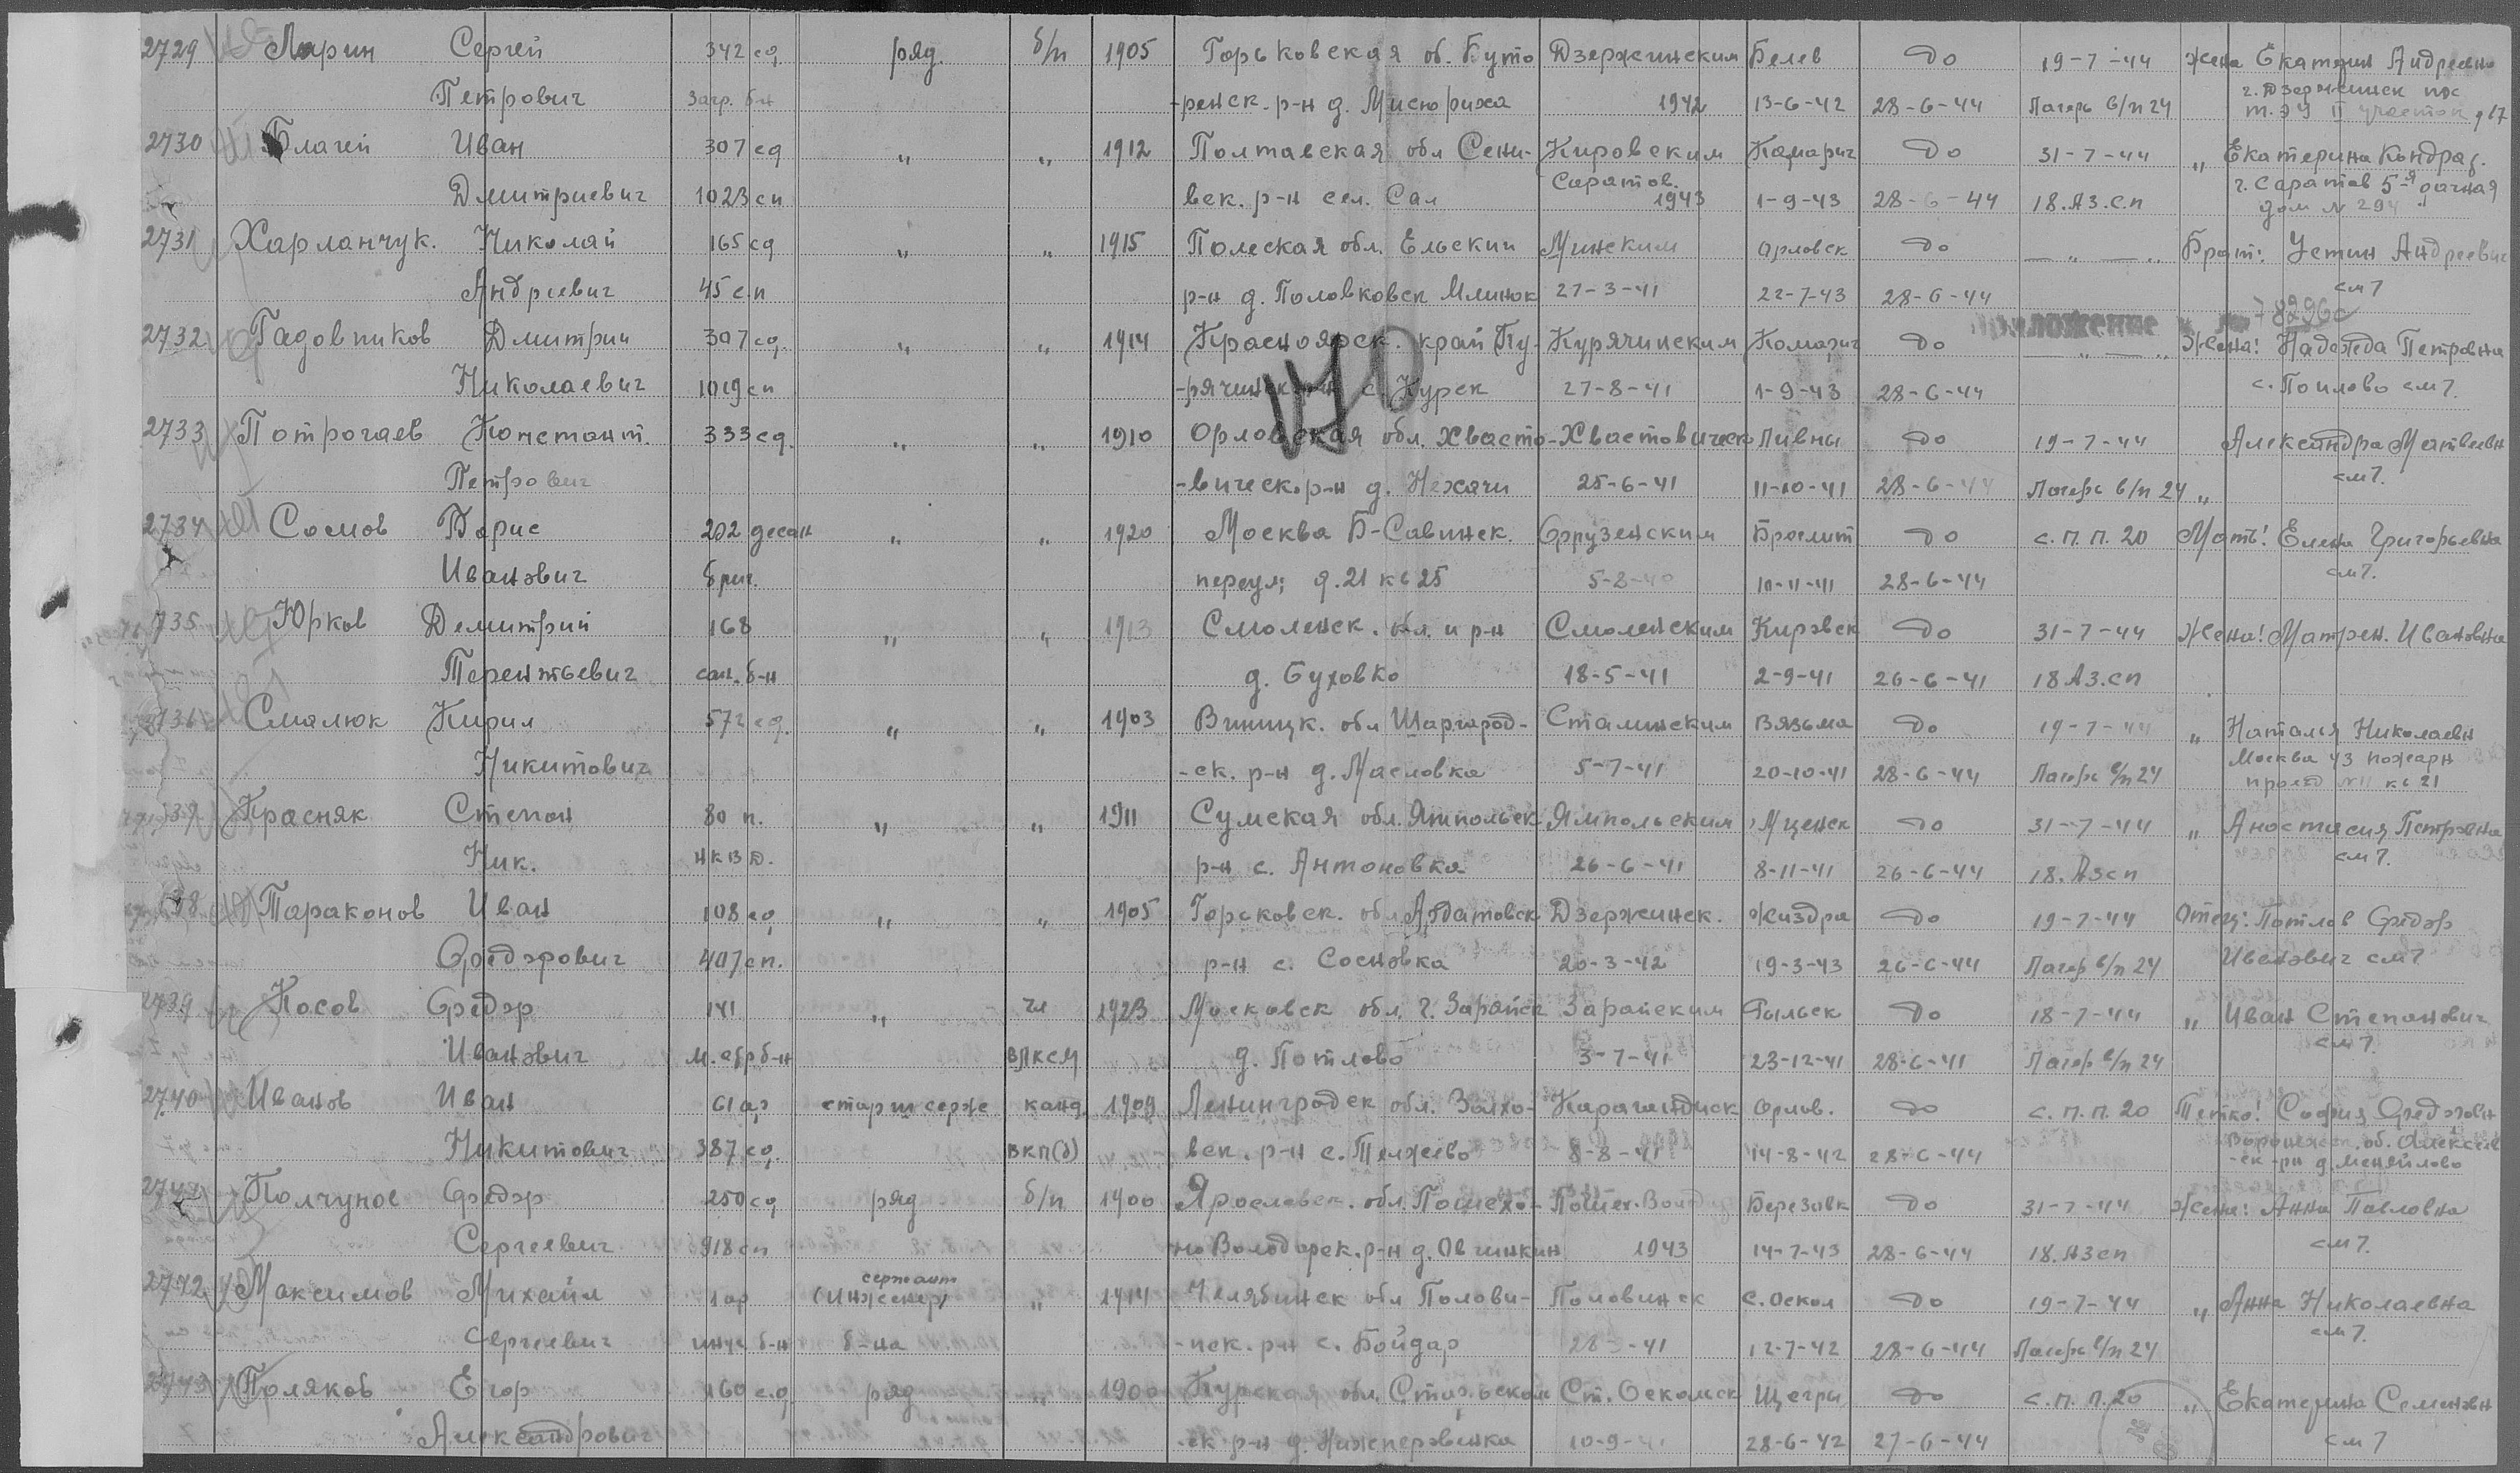 2729 Ларин Сергей 342 сд ряд. б/п 1905 Горьковская об. Буто Дзержинским Белев до 19-7-44 Жена Екатерин Андреевна
Петрович загр. б-н -ренск. р-н д. Мисюриха 1942 13-6-42 28-6-44 Лагерь в/п 24 г. Дзержинск пос
II участок д 17
2730 Благей Иван 307 сд „ „ 1912 Полтавская обл Сени- Кировским Комарич до 31-7-44 „ Екатерина Кондрат.
Дмитриевич 1023 сп век. р-н сел. Сал Саратов. 1943 1-9-43 28-6-44 18.Аз.с.п г. Саратов 5-я дачная
дом № 294
2731 Харланчук. Николай 165 сд „ „ 1915 Полеская обл. Ельский Минским Орловск до — „ — „ Брат: Устин Андреевич
Андреевич 45 с.п р-н д. Половковск Млинок 27-3-41 22-7-43 28-6-44 см 7
Приложение к № 8296с
2732 Гадовников Дмитрий 307 сд. „ „ 1914 Красноярск. край Ку- Курячинским Комарич до — „ — „ Жена! Надежда Петровна
Николаевич 1019 сп -рячинск р-н с. Курск 27-8-41 1-9-43 28-6-44 с. Поилово см 7.
170
2733 Потрогаев Констант. 333 сд. „ „ 1910 Орловская обл. Хвасто- Хвастовическ Ливны до 19-7-44 Александра Матвеевн
Петрович -вическ. р-н д. Нехочи 25-6-41 11-10-41 28-6-44 Лагерь в/п 24 „ см 7.
2734 Сомов Борис 202 десан „ „ 1920 Москва Б-Савинск. Фрузенским Брослит до с.п.п. 20 Мать! Елена Григорьевна
Иванович бриг. переул; д. 21 кв 25 5-8-40 10-11-41 28-6-44 см 7.
735 Юрков Демитрий 168 „ „ 1913 Смоленск. обл. и р-н Смоленским Кировск до 31-7-44 Жена! Матрен. Ивановна
Терентьевич сан. б-н д. Буховко 18-5-41 2-9-41 26-6-41 18 Аз.сп
736 Смалюк Кирил 572 сд. „ „ 1903 Виницк. обл Шаргород- Сталинским Вязьма до 19-7-44 „ Наталья Николаевн
Никитович -ск. р-н д. Масловка 5-7-41 20-10-41 28-6-44 Лагерь в/п 24 Москва 43 пожарн
проезд № 11 кв 21
737 Красняк Степан 80 п. „ „ 1911 Сумская обл. Ямпольск Ямпольским Мценск до 31-7-44 „ Аностасия Петровна
Ник. НКВД. р-н с. Антоновка 26-6-41 8-11-41 26-6-44 18.Азсп см 7.
738 Тараконов Иван 108 сд „ „ 1905 Горьковск. обл. Ардатовск Дзержинск. Жиздра до 19-7-44 Отец: Потлов Федор
Федорович 407 сп. р-н с. Сосновка 20-3-42 19-3-43 26-6-44 Лагер в/п 24 Иванович см 7
2739 Косов Федор 141 „ чл 1923 Московск обл. г. Зарайск Зарайским Рыльск до 18-7-44 „ Иван Степанович
Иванович м. стр б-н ВЛКСМ д. Потлово 3-7-41 23-12-41 28-6-41 Лагер в/п 24 см 7.
2740 Иванов Иван 61 ар старш серж канд. 1909 Ленинградск обл. Волхо- Карагандиск Орлов. до с.п.п. 20 Тетка! София Федоровн
Никитович 387 сд ВКП(б) век. р-н с. Тележево 8-8-41 14-8-42 28-6-44 Воронежск. об. Алексеев
-ск -рн д. Меняйлово
2741 Колчунов Федор 250 сд ряд б/п 1900 Ярославск. обл. Пошехо- Пошех. Волод Березовк до 31-7-44 Жена: Анна Павловна
Сергеевич 918 сп но Володарск. р-н д. Овчинкин 1943 14-7-43 28-6-44 18.Азсп см 7.
2742 Максимов Михаил 1 ар сержант (инженер) „ 1914 Челябинск обл Полови- Половинск С. Оскол до 19-7-44 „ Анна Николаевна
Сергеевич б-на -нск. р-н с. Байдар 41 12-7-42 28-6-44 Лагерь в/п 24 см 7.
2743 Поляков Егор 160 с.д ряд „ 1900 Курская обл. Ст. Оскольск Щегры до с.п.п. 20 „ Екатерина Семеновн
Александрович -ск р-н 10-9-41 28-6-42 27-6-44 см 7